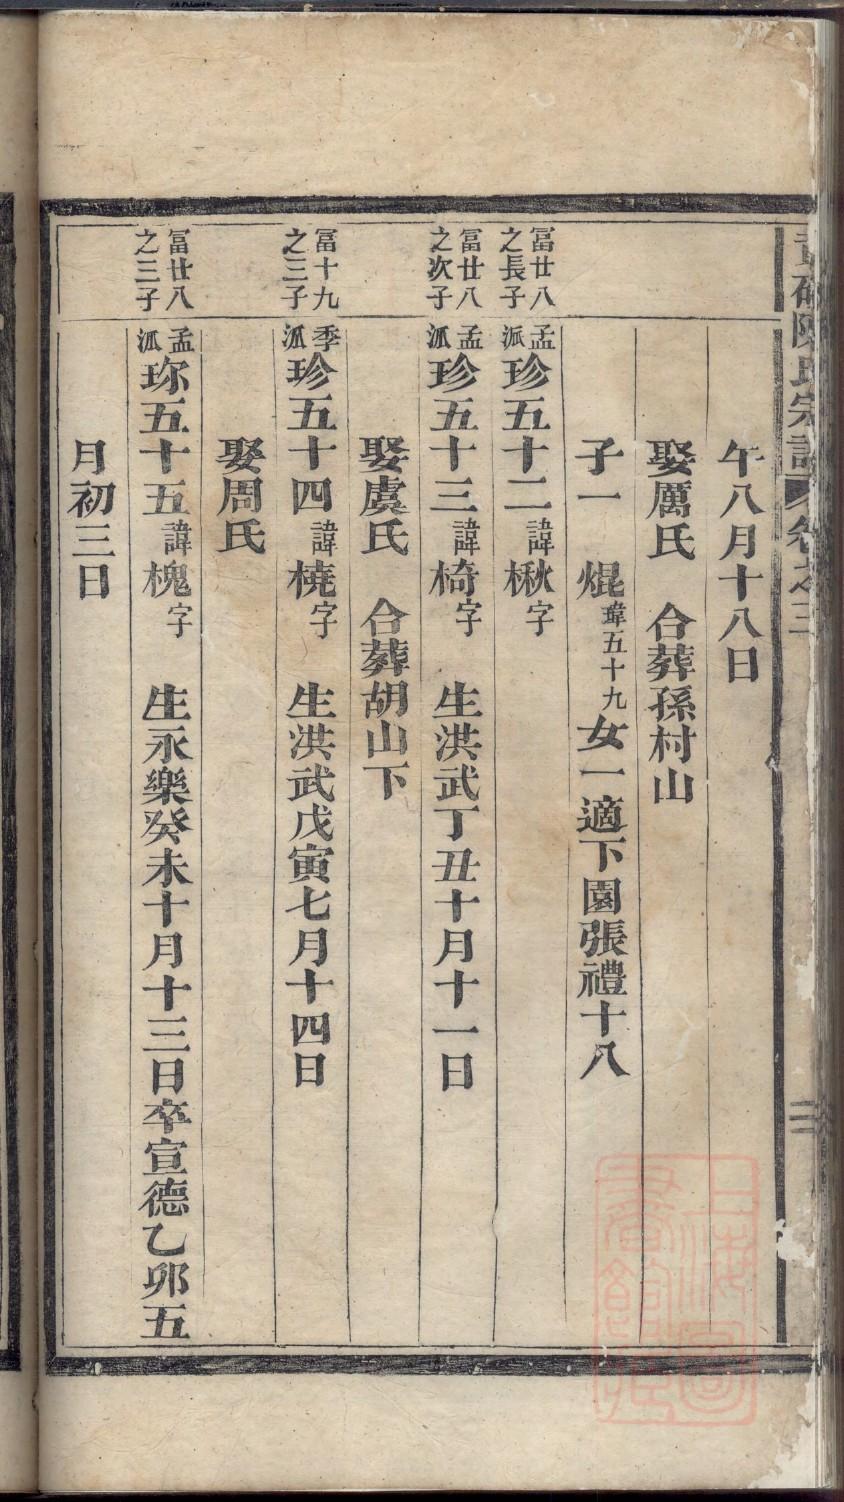 陳氏宗譜 卷之三
午八月十八日
娶厲氏 合葬孫村山
子一 焜瑋五十九女一適下園張禮十八
冨廿八之長子 孟派珍五十二諱楸字
冨廿八之次子 孟派珍五十三諱椅字 生洪武丁丑十月十一日
娶虞氏 合葬胡山下
冨十九之三子 季派珍五十四諱橈字 生洪武戊寅七月十四日
娶周氏
冨廿八之三子 孟派珎五十五諱槐字 生永樂癸未十月十三日卒宣德乙卯五
月初三日
上海圖書館藏